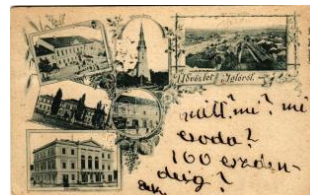 Üdvözlet Iglóról.
mi? mi
csoda?
100 eszden-
deig?